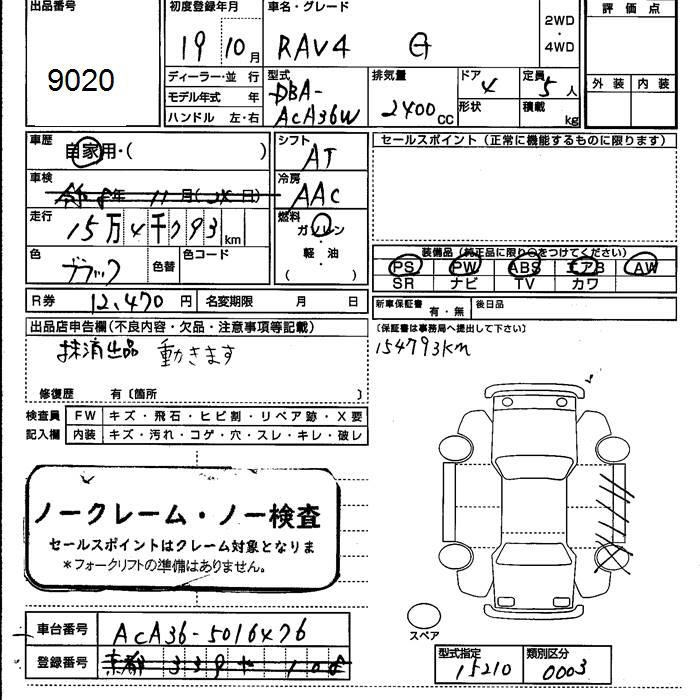 出品番号
9020
初度登録年月
19 10月
車名・グレード
RAV4 G
2WD
・
4WD
評価点
外装 内装
ディーラー・並行
モデル年式 年
ハンドル 左・右
型式
DBA-
ACA36W
排気量
2400cc
ドア 4
形状
定員 5人
積載 kg
車歴
自家用・( )
車検
年 11月( 日)
走行
15万4千793km
色
ブラック
色替
色コード
シフト
AT
冷房
AAC
燃料
ガソリン
・
軽油
( )
セールスポイント(正常に機能するものに限ります)
装備品(純正品に限り○をつけてください)
PS PW ABS エアB AW
SR ナビ TV カワ
R券 12,470円 名変期限 月 日
新車保証書 有・無 後日品
(保証書は事務局へ提出して下さい)
154793KM
出品店申告欄(不良内容・欠品・注意事項等記載)
抹済出品 動きます
修復歴 有〔箇所 〕
検査員
記入欄
FW キズ・飛石・ヒビ割・リペア跡・X要
内装 キズ・汚れ・コゲ・穴・スレ・キレ・破レ
ノークレーム・ノー検査
セールスポイントはクレーム対象となりま
*フォークリフトの準備はありません。
スペア
車台番号 ACA36-5016476
登録番号 京都
型式指定
15210
類別区分
0003